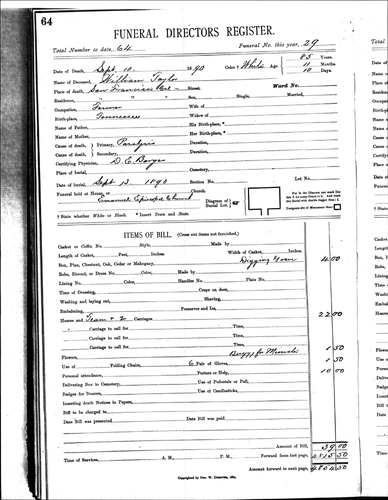 64
FUNERAL DIRECTORS REGISTER.
Total Number to date, 64 Funeral No. this year, 29
Date of Death, Sept. 10. 1890 Color † White Age 85 Years. 11 Months 10 Days.
Name of Deceased, William Taylor
Place of death, San Francisco Cal - Street. Ward No.
Residence, Sex, Single, Married,
Occupation, Farmer Wife of
Birth-place, Tennessee Widow of
Name of Father, His Birth-place,*
Name of Mother, Her Birth-place,*
Cause of death, Primary, Paralysis Duration,
Cause of death, Secondary, Duration,
Certifying Physician, D. E.
Place of burial, Cemetery,
Date of burial, Sept 13. 1890 Section No. Lot No.
Funeral held at House, or Church.
Emanuel Episcopal Church
Diagram of Burial Lot.
† State whether White or Black. * Insert Town and State.
ITEMS OF BILL. (Cross out items not furnished.)
Casket or Coffin No. Style, Made by
Length of Casket, Feet, Inches. Width of Casket, Inches.
Box, Pine, Chestnut, Oak, Cedar or Mahogany, Digging Grave 4.00
Robe, Shroud, or Dress No. Color, Made by
Lining No. Color, Handles No. Plate No.
Time of Dressing, Crape on door,
Washing and laying out, Sharing,
Embalming, Preserver and Ice,
Hearse and Team & 2 Carriages. 22.00
" Carriage to call for Time,
Carriage to call for Time,
Carriage to call for Time,
Flowers, Buggy for 1 50
Use of Folding Chairs, 6 Pair of Gloves, 1 50
Personal attendance, Porters or Help, 10 00
Delivering Box to Cemetery, Use of Pedestals or Pall,
Badges for Bearers, Use of Candlesticks,
Inserting death Notices in Papers,
Bill to be charged to
Date Bill was presented Date Bill was paid
Amount of Bill, 39.00
Time of Services, A. M., P. M. Forward from last page,
Amount forward to next page,